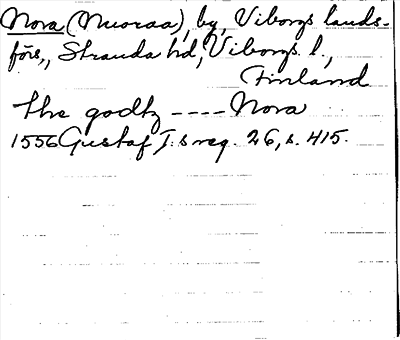 Nora (Nuoraa), by, Viborgs lands-
förs., Stranda hd, Viborgs l.,
Finland
the godtz ---- Nora
1556 Gustaf I:s reg. 26, s. 415.